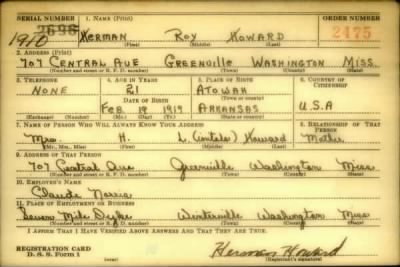 SERIAL NUMBER 1. NAME (Print) ORDER NUMBER
2696 1910 HERMAN ROY HOWARD 2475
(First) (Middle) (Last)
2. ADDRESS (Print)
707 CENTRAL AVE GREENVILLE WASHINGTON MISS.
(Number and street or R. F. D. number) (Town) (County) (State)
3. TELEPHONE 4. AGE IN YEARS 5. PLACE OF BIRTH 6. COUNTRY OF CITIZENSHIP
NONE 21 ATOWAH
DATE OF BIRTH (Town or county)
FEB 19 1919 ARKANSAS U.S.A
(Exchange) (Number) (Mo.) (Day) (Yr.) (State or country)
7. NAME OF PERSON WHO WILL ALWAYS KNOW YOUR ADDRESS 8. RELATIONSHIP OF THAT PERSON
Mrs. H. L. (initials) Howard Mother
(Mr., Mrs., Miss) (First) (Middle) (Last)
9. ADDRESS OF THAT PERSON
707 Central Ave Greenville Washington Miss
(Number and street or R. F. D. number) (Town) (County) (State)
10. EMPLOYER'S NAME
Claude
11. PLACE OF EMPLOYMENT OR BUSINESS
Seven Mile Washington Miss
(Number and street or R. F. D. number) (Town) (County) (State)
I AFFIRM THAT I HAVE VERIFIED ABOVE ANSWERS AND THAT THEY ARE TRUE.
REGISTRATION CARD
D. S. S. Form 1 Herman Howard
(Registrant's signature)